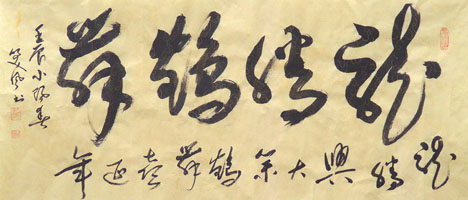 龍騰鶴舞
龍騰興大業鶴舞喜延年
壬辰小陽春